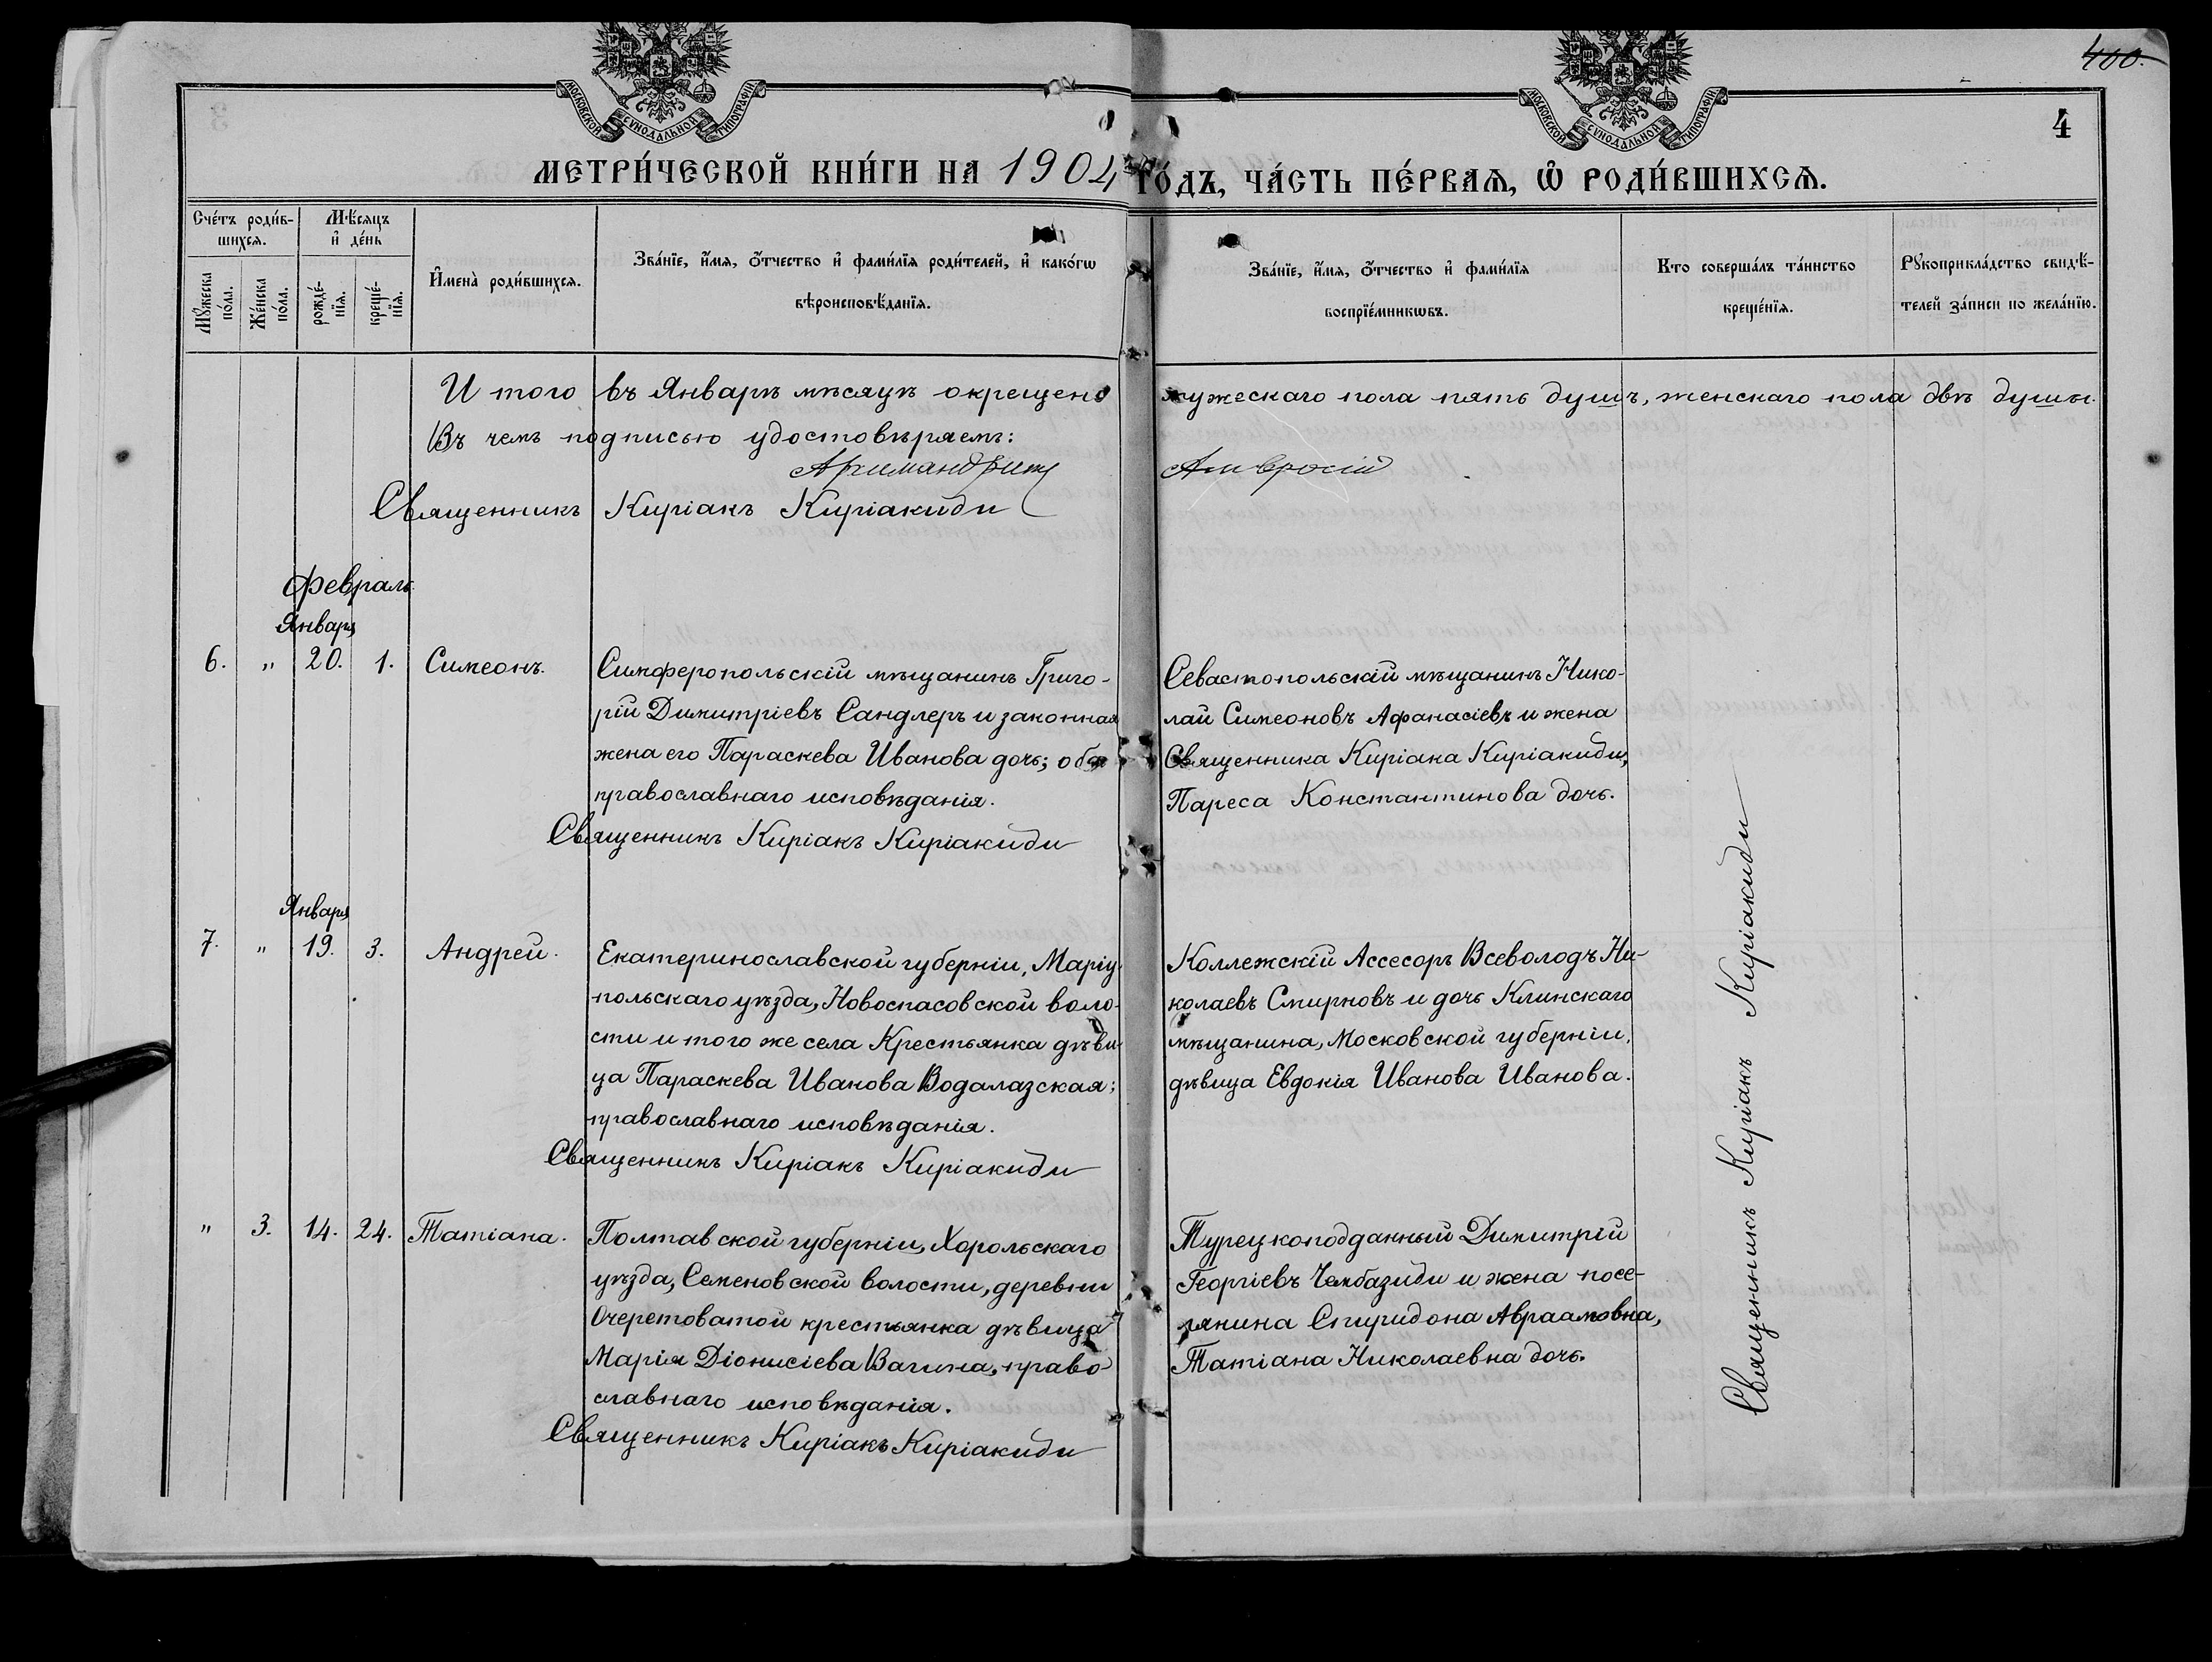 400.
4
МОСКОВСКОЙ СѴНОДАЛЬНОЙ ТИПОГРАФІИ
МОСКОВСКОЙ СѴНОДАЛЬНОЙ ТИПОГРАФІИ
МЕТРИ́ЧЕСКОЙ КНИ́ГИ НА 1904 ГО́ДЪ, ЧА́СТЬ ПЕ́РВАѦ, Ѡ҆ РОДИ́ВШИХСѦ.
Сче́тъ роди́в-
шихсѧ.
Мѣ́сѧцъ
и҆ де́нь
Мꙋ́жеска
по́ла.
Же́нска
по́ла.
рожде́-
нїѧ.
креще́-
нїѧ.
И҆мена̀ роди́вшихсѧ.
Зва́нїе, и҆́мѧ, ѻ҆́тчество и҆ фами́лїѧ роди́телей, и҆ како́гѡ
вѣроисповѣ́данїѧ.
Зва́нїе, и҆́мѧ, ѻ҆́тчество и҆ фами́лїѧ
воспрїе́мникѡвъ.
Кто соверша́лъ та́инство
креще́нїѧ.
Рꙋкоприкла́дство свидѣ́-
телей за́писи по жела́нїю.
И того въ Январѣ мѣсяцѣ окрещено мужескаго пола пять душъ, женскаго пола двѣ души.
Въ чемъ подписью удостовѣряемъ:
Архимандритъ Амвросій
Священникъ Киріакъ Киріакиди
Февраль.
Января
6. " 20. 1. Симеонъ.
Симферопольскій мѣщанинъ Григо-
рій Димитріевъ Сандлеръ и законная
жена его Параскева Иванова дочь; оба
православнаго исповѣданія.
Священникъ Киріакъ Киріакиди
Севастопольскій мѣщанинъ Нико-
лай Симеоновъ Афанасіевъ и жена
Священника Киріака Киріакиди,
Пареса Константинова дочь.
Января
7. " 19. 3. Андрей.
Екатеринославской губерніи, Маріу-
польскаго уѣзда, Новоспасовской воло-
сти и того же села Крестьянка дѣви-
ца Параскева Иванова Водалазская;
православнаго исповѣданія.
Священникъ Киріакъ Киріакиди
Коллежскій Ассесоръ Всеволодъ Ни-
колаевъ Смирновъ и дочь Клинскаго
мѣщанина, Московской губерніи,
дѣвица Евдокія Иванова Иванова.
" 3. 14. 24. Татіана.
Полтавской губерніи, Хорольскаго
уѣзда, Семеновской волости, деревни
Очеретоватой крестьянка дѣвица
Марія Діонисіева Вагина, право-
славнаго исповѣданія.
Священникъ Киріакъ Киріакиди
Турецкоподданный Димитрій
Георгіевъ Чембазиди и жена посе-
лянина Спиридона Авраамовна,
Татіана Николаевна дочь.
Священникъ Киріакъ Киріакиди